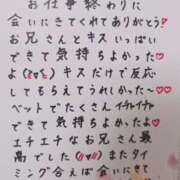 お仕事終わりに
会いにきてくれてありがとう!
お兄さんとキスいっぱい
できて気持ちよかった
よ(♥ỏ♥)キスだけで反応
してもらえてうれし〜♡
ベットでたくさんイチャイチャ
できて気持ちよかった♡
エチエチなお兄さん最
高でした(〃♥〃)またタイ
ミング合えば会いにきて